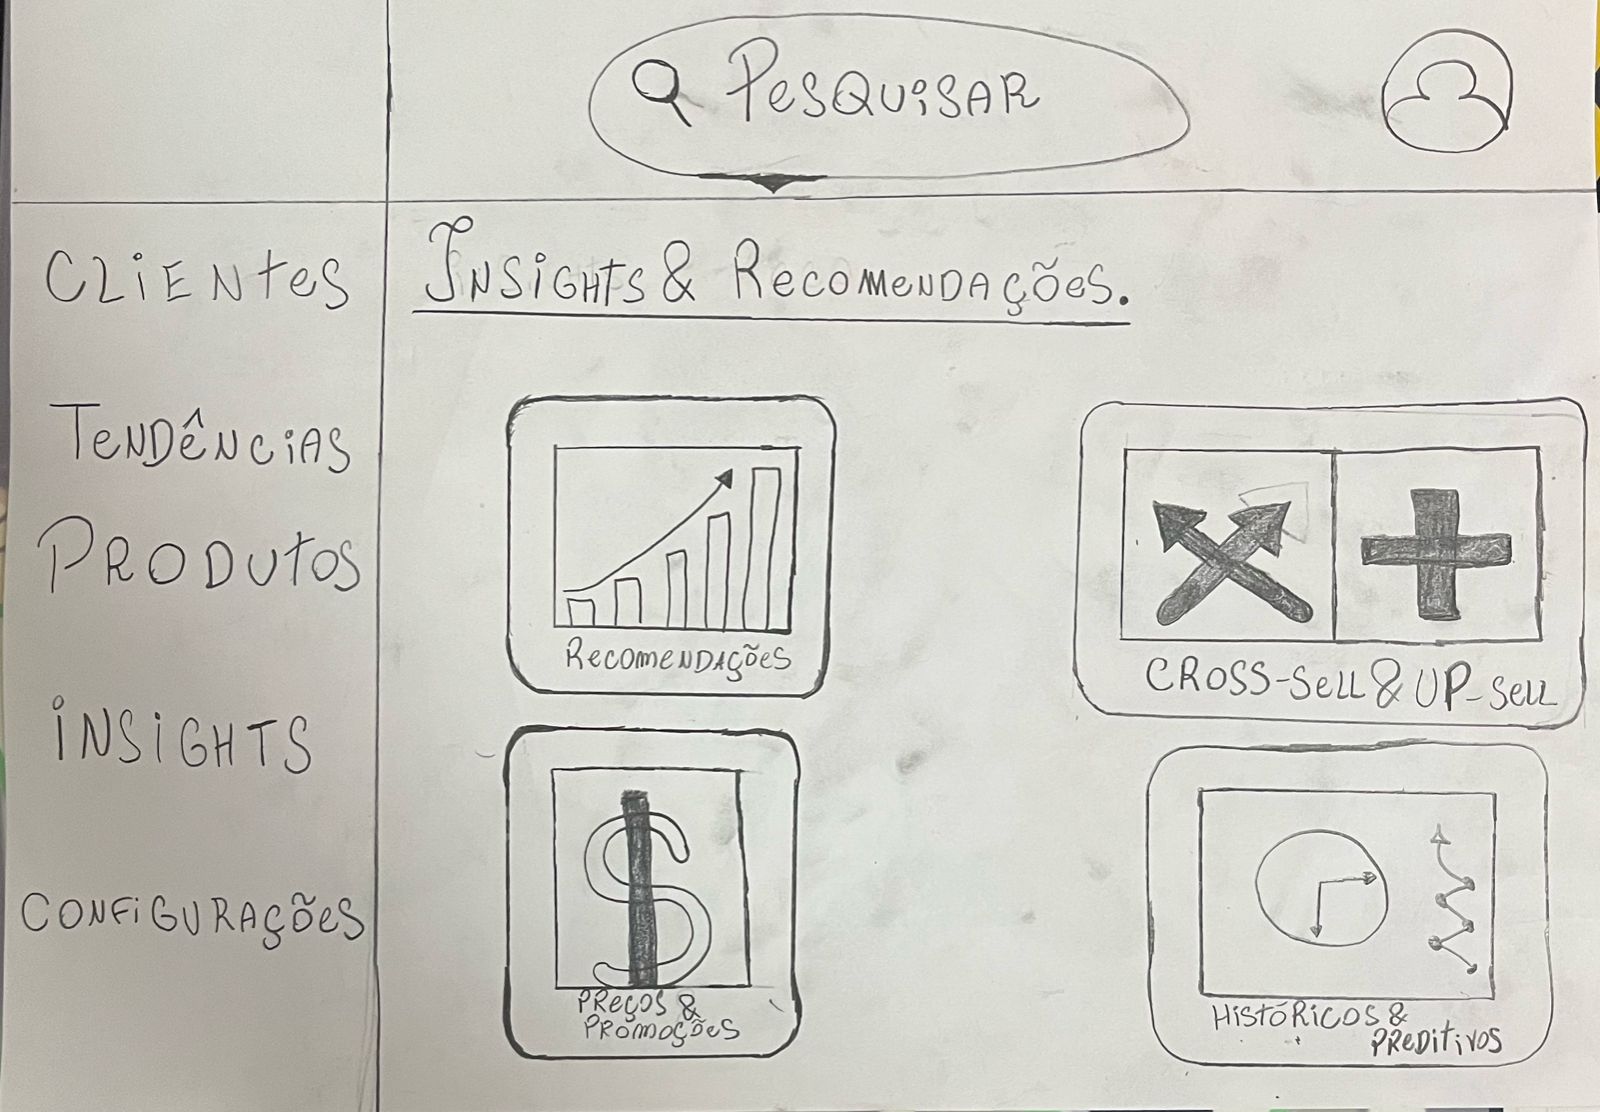 Pesquisar
Clientes
Tendências
Produtos
Insights
Configurações
Insights & Recomendações.
Recomendações
Cross-sell & Up-sell
$
Preços &
Promoções
Históricos &
Preditivos